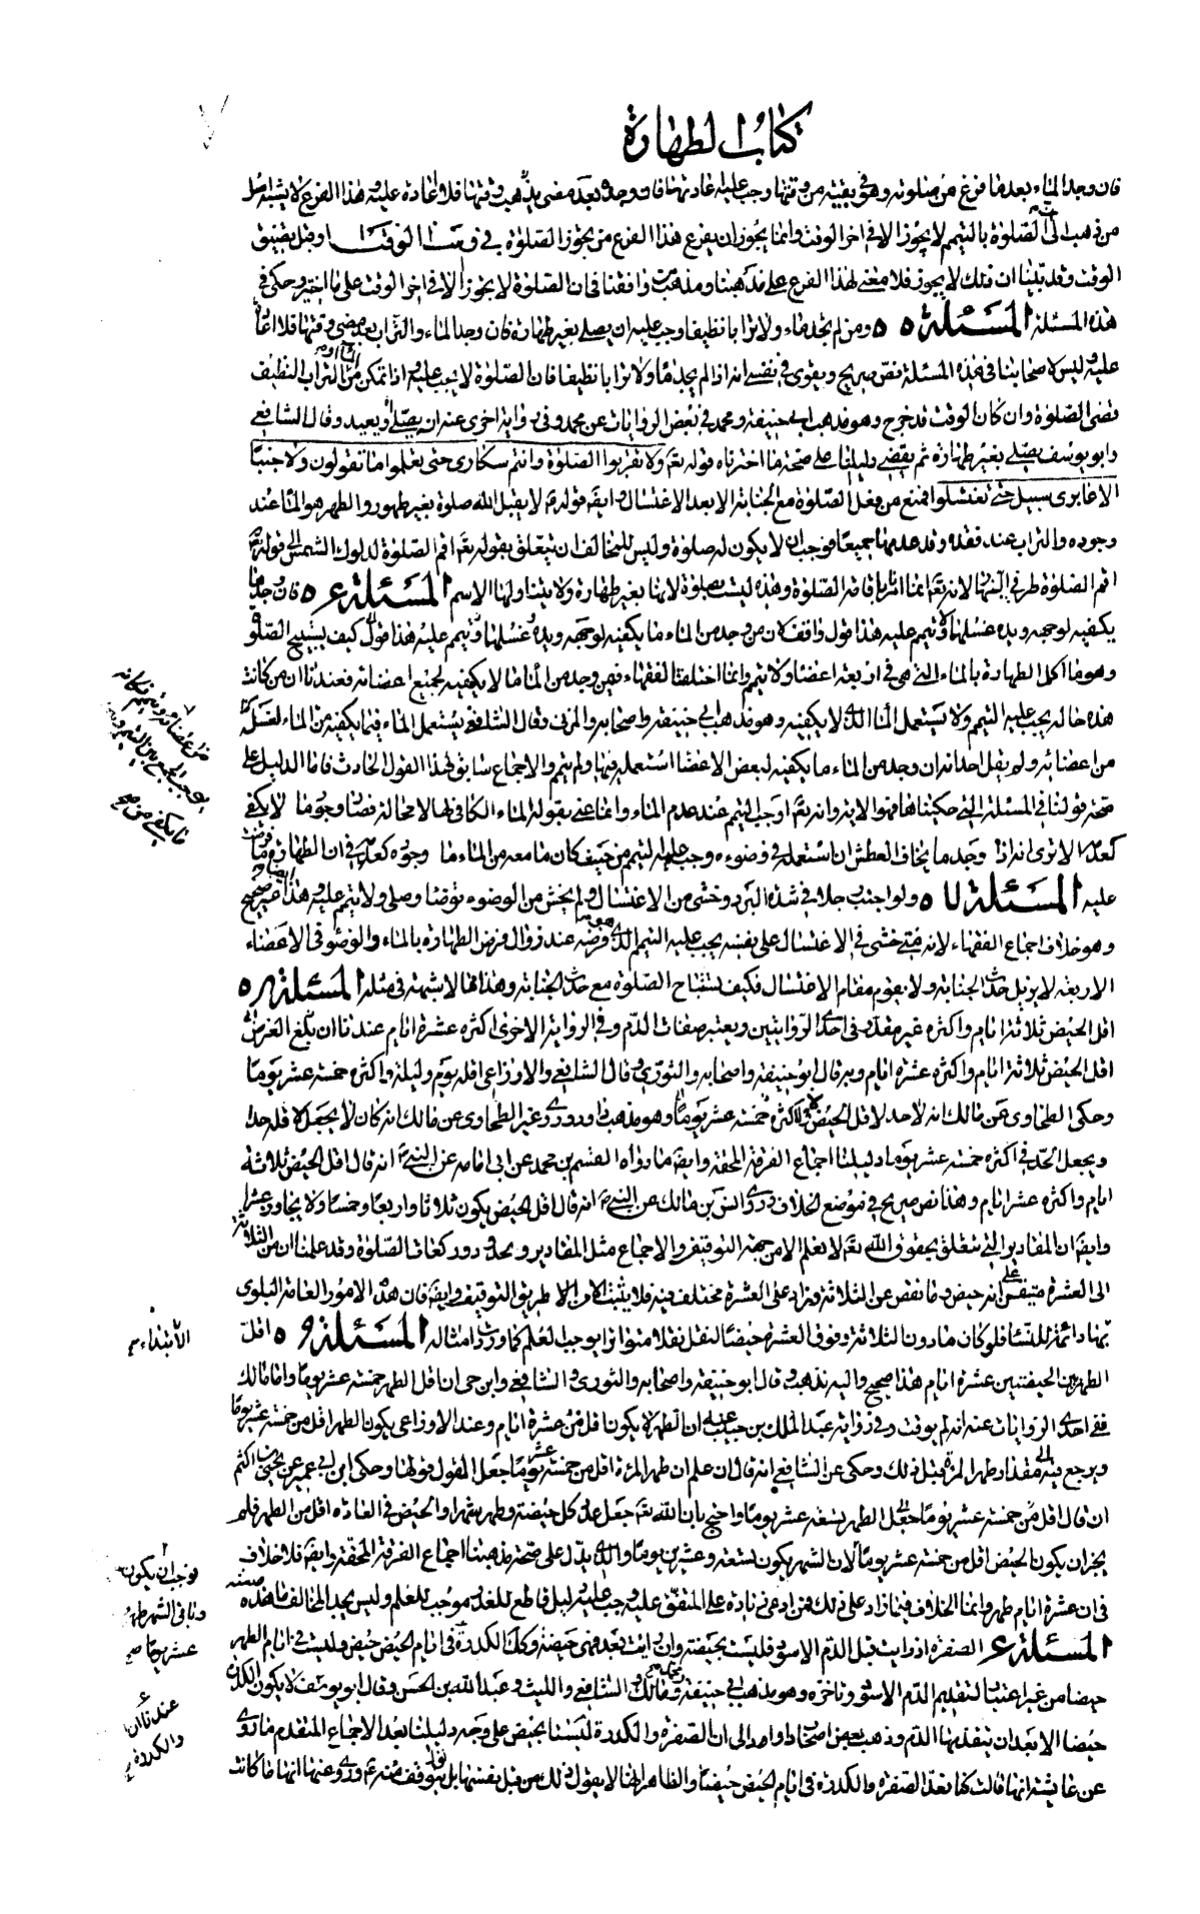 كتاب الطهارة
فان وجد الماء بعد ما فرغ من صلوته وهو في بقية من وقتها وجب عليه اعادتها فان وجده بعد مضي وقتها فلا اعادة عليه وهذا الفرع لا يشبه اصل
من ذهب الى ان الصلوة بالتيمم لا يجوز الا في اخر الوقت وانما يجوز ان يفرع هذا الفرع من يجوز الصلوة في وسط الوقت او قبل تضيق
الوقت وقد بينا ان ذلك لا يجوز فلا معنى لهذا الفرع على مذهبنا ومذهب من وافقنا في ان الصلوة لا يجوز الا في اخر الوقت على ما اخبر وحكى في
هذه المسئلة المسئلة ٥٥ ومن لم يجد ماء ولا ترابا نظيفا وجب عليه ان يصلي بغير طهارة فان وجد الماء والتراب بعد مضي وقتها فلا اعادة
عليه وليس لاصحابنا في هذه المسئلة نص صريح ويقوى في نفسي انه اذا لم يجد ماء ولا ترابا نظيفا فان الصلوة لا يجب عليه واذا تمكن من الماء او من التراب النظيف
قضى الصلوة وان كان الوقت قد خرج وهو مذهب ابي حنيفة ومحمد في بعض الروايات عن محمد وفي رواية اخرى عنه ان يصلي ويعيد وقال الشافعي
وابو يوسف يصلي بغير طهارة ثم يقضي دليلنا على صحة ما اخترناه قوله تع ولا تقربوا الصلوة وانتم سكارى حتى تعلموا ما تقولون ولا جنبا
الا عابرى سبيل حتى تغتسلوا فمنع من فعل الصلوة مع الجنابة الا بعد الاغتسال وايض قوله ع لا يقبل الله صلوة بغير طهور والطهر هو الماء عند
وجوده والتراب عند فقده وقد عدمهما جميعا فوجب ان لا يكون له صلوة وليس للمخالف ان يتعلق بقوله تع اقم الصلوة لدلوك الشمس الى قوله
اقم الصلوة طرفي النهار لانه تع انما امر باقامة الصلوة وهذه ليست بصلوة لانها بغير طهارة ولا يتناولها الاسم المسئلة ٥٦ فان وجد ما
يكفيه لوجهه ويديه غسلهما ولا تيمم عليه هذا قول وافق كان من وجد من الماء ما يكفيه لوجهه ويديه غسلهما ولا تيمم عليه هذا قول كيف يستبيح الصلوة
وهو ما اكمل الطهارة بالماء التي هي في اربعة اعضاء ولا تيمم وانما اختلف الفقهاء فيمن وجد من الماء ما لا يكفيه لجميع اعضائه فعندنا ان من كانت
هذه حاله يجب عليه التيمم ولا يستعمل الماء الذي لا يكفيه وهو مذهب ابي حنيفة واصحابه والمزنى وقال الشافعي يستعمل الماء فيما يكفيه من الماء لغسله
من اعضائه ولم يقل احد انه ان وجد من الماء ما يكفيه لبعض الاعضاء استعمله فيها ولم يتيمم والاجماع سابق لهذا القول الحادث فاما الدليل على
صحة قولنا في المسئلة التي حكيناها فهو الاية وانه تع اوجب التيمم عند عدم الماء وانما عنى بقوله الماء الكافي لها لا محالة فصار وجود ما لا يكفي
كعدمه الا ترى انه اذا وجد ما يخاف العطش ان استعمله في وضوءه وجب عليه التيمم من حيث كان ما معه من الماء ما وجوده كعدمه في ان الطهارة ما فرضت
عليه المسئلة ٥٧ ولو اجنب رجلا في شدة البرد وخشى من الاغتسال ولم يخش من الوضوء توضا وصلى ولا تيمم عليه وهذا ايضا غير صحيح
وهو خلاف اجماع الفقهاء لانه متى خشى في الاغتسال على نفسه يجب عليه التيمم الذي هو فرضه عند زوال فرض الطهارة بالماء والوضوء في الاعضاء
الاربعة لا يزيل حدث الجنابة ولا يقوم مقام الاغتسال فكيف يستباح الصلوة مع حدث الجنابة وهذا مما لا شبهة في مثله المسئلة ٥٨
اقل الحيض ثلاثة ايام واكثره غير مقدر في احدى الروايتين ويعتبر صفات الدم وفي الرواية الاخرى اكثره عشرة ايام عندنا ان تبلغ الغرض
اقل الحيض ثلاثة ايام واكثره عشرة ايام وبه قال ابو حنيفة واصحابه والثوري وقال الشافعي والاوزاعي اقله يوم وليلة واكثره خمسة عشر يوما
وحكى الطحاوى عن مالك انه لا حد لاقل الحيض ولا لاكثره خمسة عشر يوما وهو مذهب داود وروى غير الطحاوى عن مالك انه كان لا يجعل لاقله حدا
ويجعل الحد في اكثره خمسة عشر يوما دليلنا اجماع الفرقة المحقة وايض ما رواه القسم بن محمد عن ابى امامة عن النبي ع انه قال اقل الحيض ثلاثة
ايام واكثره عشر ايام وهذا نص صريح في موضع الخلاف وروى انس بن مالك عن النبي ع انه قال اقل الحيض يكون ثلاثا واربعا وخمسا ولا يجاوز عشرا
وايض ان المقادير التي تتعلق بحقوق الله تع لا تعلم الا من جهة التوقيف والاجماع مثل المقادير وبحدود ركعات الصلوة وقد علمنا ان من الثلاثة
الى العشرة متيقن على انه حيض وما نقص عن الثلاثة وزاد على العشرة مختلف فيه فلا يثبت الا من طريق التوقيف وايض فان هذه الامور العامة البلوى
بها دائمة للنساء فلو كان ما دون الثلاثة وفوق العشرة حيضا لنقل نقلا متواترا يوجب العلم كما ورد امثاله المسئلة ٥٩ اقل
الطهر بين الحيضتين عشرة ايام هذا صحيح واليه نذهب وقال ابو حنيفة واصحابه والثورى والشافعي وابن حى ان اقل الطهر خمسة عشر يوما واما مالك
ففي احدى الروايات عنه انه لم يوقت وفي رواية عبد الملك بن حبيب عنه ان الطهر لا يكون اقل من عشرة ايام وعند الاوزاعى يكون الطهر اقل من خمسة عشر يوما
ويرجع فيه الى مقدار طهر المرأة قبل ذلك وحكى عن الشافعي انه قال ان علم ان طهر المرءة اقل من خمسة عشر يوما جعل القول قولها وحكى ابن ابي عمير عن يحيى بن اكثم
ان قال اقل من خمسة عشر يوما جعل الطهر تسعة عشر يوما واحتج بان الله تع جعل عدل كل حيضة وطهر شهرا والحيض في العادة اقل من الطهر فلم
يجز ان يكون الحيض اقل من خمسة عشر يوما لان الشهر يكون تسعة وعشرين يوما والذي يدل على صحة مذهبنا اجماع الفرقة المحقة وايض فلا خلاف
في ان عشرة ايام طهر وانما الخلاف فيما زاد على ذلك فمن ادعى زيادة على المتفق عليه وجب عليه دليل قاطع للعذر موجب للعلم وليس يجد المخالف ما هذه صفته
المسئلة ٦٠ الصفرة اذا رايت قبل الدم الاسود فليست بحيضة وان رايت بعده فهي حيضة وكذلك الكدرة في ايام الحيض حيض وليست في ايام الطهر
حيضا من غير اعتبار لتقديم الدم الاسود وتاخره وهو مذهب ابي حنيفة ومحمد ومالك والشافعي والليث وعبد الله بن الحسن وقال ابو يوسف لا يكون الكدرة
حيضا الا بعد ان يتقدمها الدم وذهب بعض اصحاب داود الى ان الصفرة والكدرة ليستا بحيض على وجه دليلنا بعد الاجماع المتقدم ما روى
عن عايشة انها قالت كنا نعد الصفرة والكدرة في ايام الحيض حيضا والظاهر انها لا يقول ذلك من قبل نفسها بل بتوقيف منه ع وروى عنها انها ما كانت
ما يكفي من صح
الابتداء م
فوجب ان يكون
وباقي الشهر طهر
عشر يوما صح
عندنا ان
والكدرة